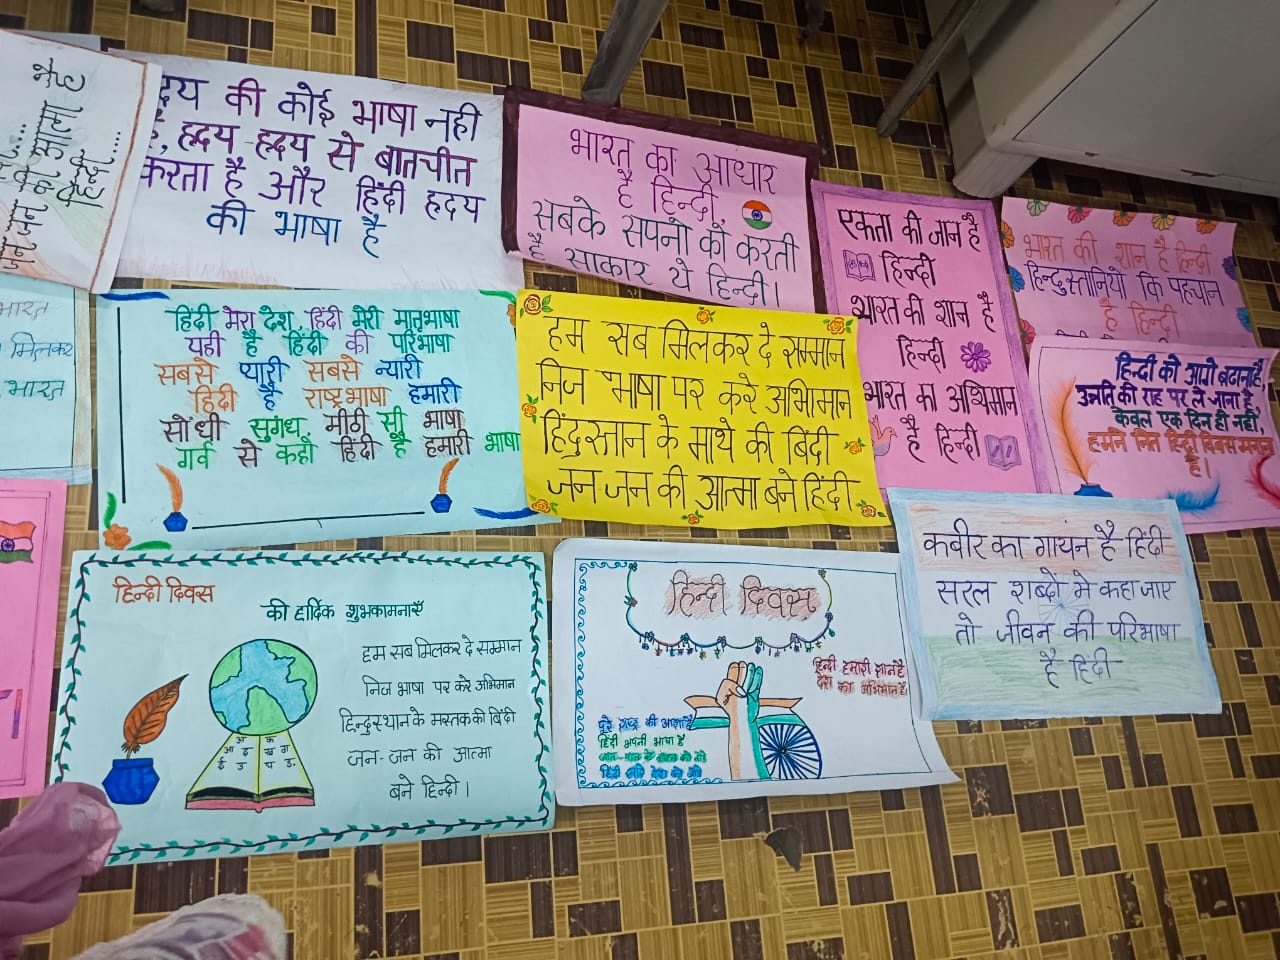 जन-जन की आत्मा है
हिन्दी....
दय की कोई भाषा नही
है, हृदय-हृदय से बातचीत
करता है और हिंदी हृदय
की भाषा है
भारत का आधार
है हिन्दी,
सबके सपनो को करती
है साकार ये हिन्दी।
एकता की जान है
हिन्दी
भारत की शान है
हिन्दी
भारत का अभिमान
है हिन्दी
भारत की शान है हिन्दी
हिन्दुस्तानियो कि पहचान
है हिन्दी
भारत
मिलकर
भारत
हिंदी मेरा देश हिंदी मेरी मातृभाषा
यही है हिंदी की परिभाषा
सबसे प्यारी सबसे न्यारी
हिंदी है राष्ट्रभाषा हमारी
सोंधी सुगंध मीठी सी भाषा
गर्व से कहो हिंदी है हमारी भाषा
हम सब मिलकर दे सम्मान
निज भाषा पर करे अभिमान
हिंदुस्तान के माथे की बिंदी
जन जन की आत्मा बने हिंदी
हिन्दी को आगे बढ़ाना है,
उन्नति की राह पर ले जाना है
केवल एक दिन ही नहीं,
हमने नित हिन्दी दिवस मनाना
है।
कबीर का गायन है हिंदी
सरल शब्दो मे कहा जाए
तो जीवन की परिभाषा
है हिंदी
हिन्दी दिवस
की हार्दिक शुभकामनाएँ
हम सब मिलकर दे सम्मान
निज भाषा पर करे अभिमान
हिन्दुस्थान के मस्तक की बिंदी
जन-जन की आत्मा
बने हिन्दी।
हिन्दी दिवस
हिन्दी हमारी शान है
देश का अभिमान है।
पूरे राष्ट्र की आशा है
हिंदी अपनी भाषा है